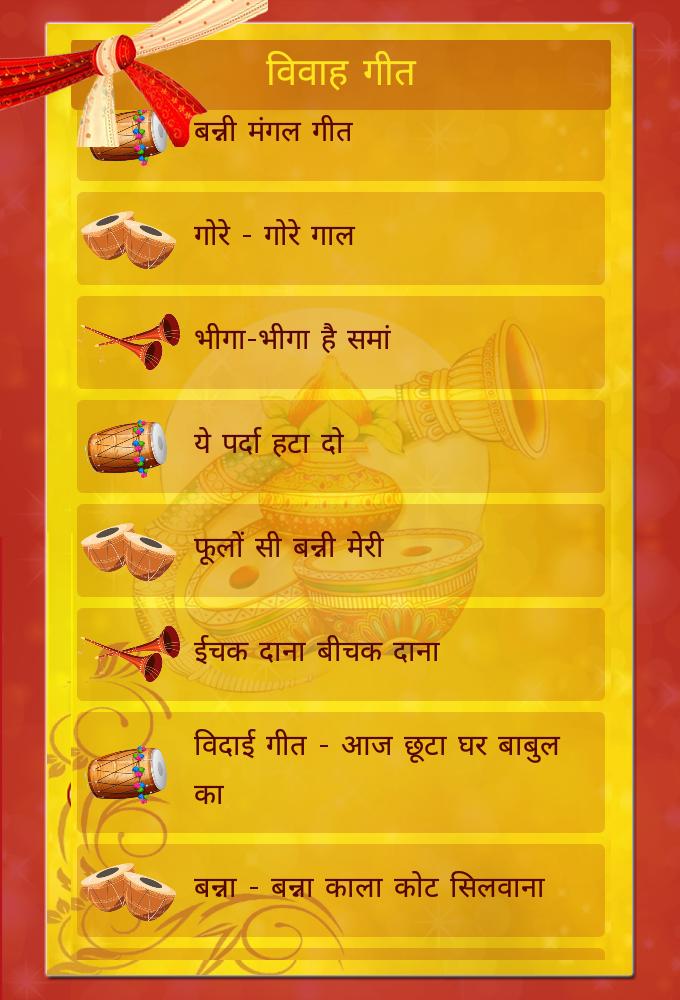 विवाह गीत
बन्नी मंगल गीत
गोरे - गोरे गाल
भीगा-भीगा है समां
ये पर्दा हटा दो
फूलों सी बन्नी मेरी
ईचक दाना बीचक दाना
विदाई गीत - आज छूटा घर बाबुल
का
बन्ना - बन्ना काला कोट सिलवाना